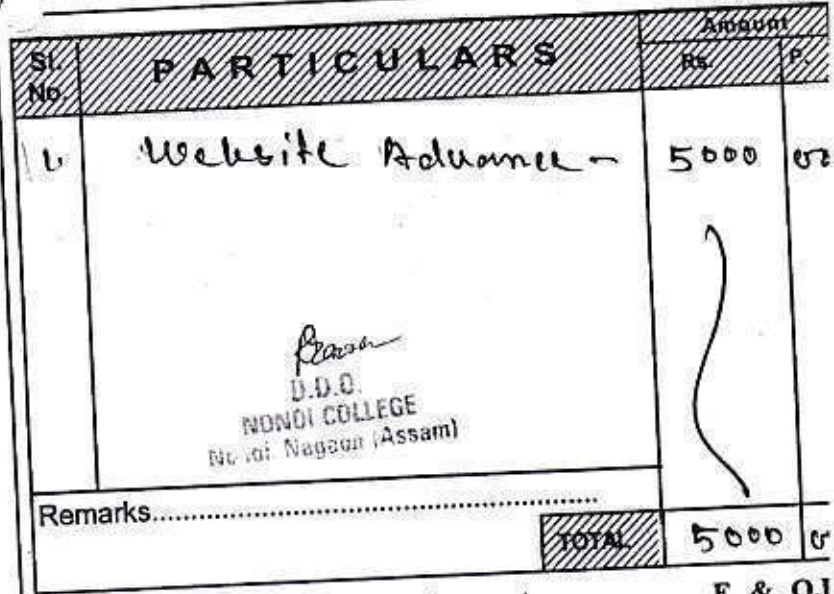 Amount
Sl. No. PARTICULARS Rs. P.
Website Advance - 5000
D.D.O.
NONOI COLLEGE
Nonoi, Nagaon (Assam)
Remarks
TOTAL 5000
E. & O.